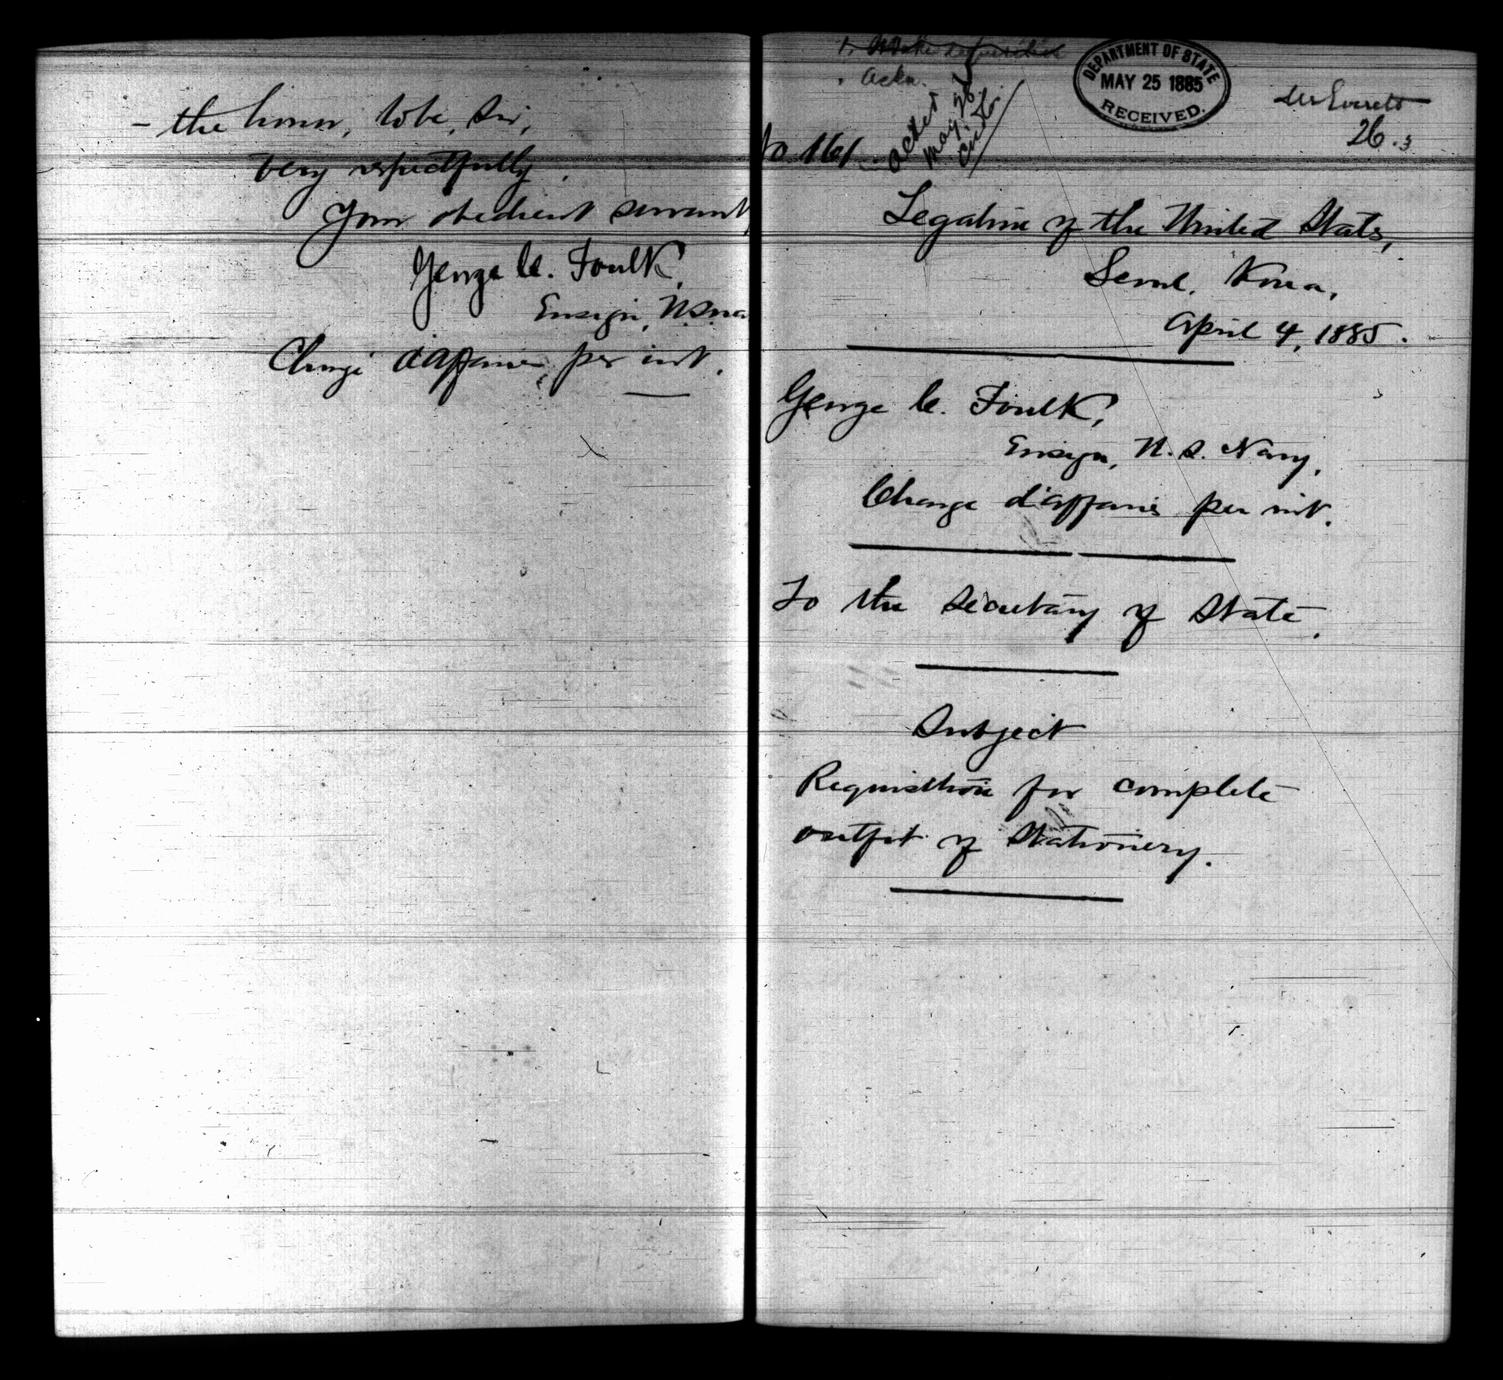 - the honor, to be, Sir,
very respectfully.
Your obedient servant
George C. Foulk,
Ensign, U.S. Na
Chargé d'affaires per int.
Ackn.
DEPARTMENT OF STATE
MAY 25 1885
RECEIVED.
Mr Everett
26.3
Acked
May 26
No 161.
Legation of the United States,
Seoul, Korea,
April 4, 1885.
George C. Foulk,
Ensign, U.S. Navy,
Charge d'affaires per int.
To the Secretary of State.
Subject
Requisition for complete
outfit of Stationery.